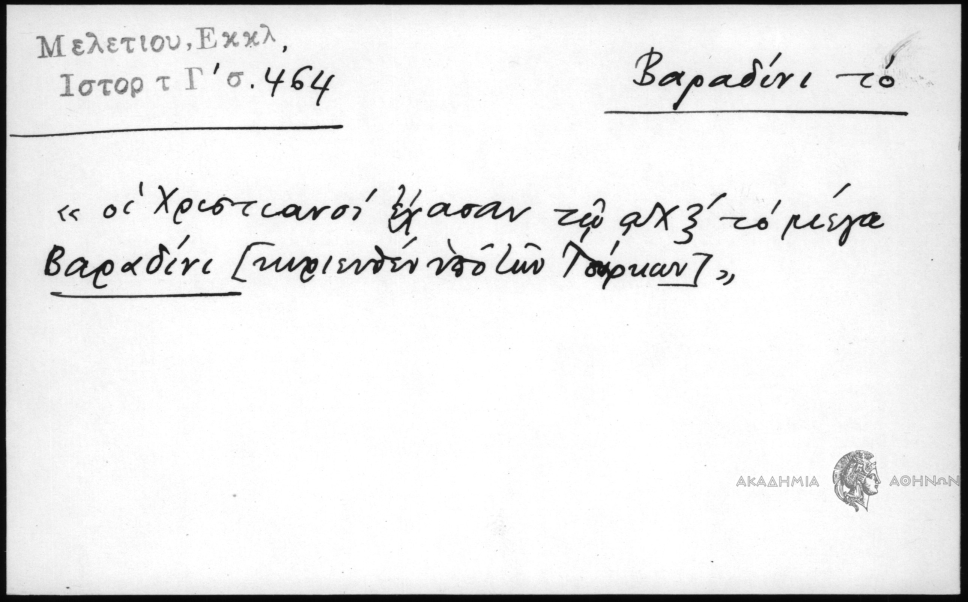 Μελετιου, Εκκλ,
Ιστορ τ Γ' σ. 464
Βαραδίνι τό
« οἱ Χριστιανοί ἔχασαν τῷ αχξ´ τό μέγα
Βαραδίνι [κυριευθέν ὑπό τῶν Τούρκων] »
ΑΚΑΔΗΜΙΑ ΑΘΗΝΩΝ